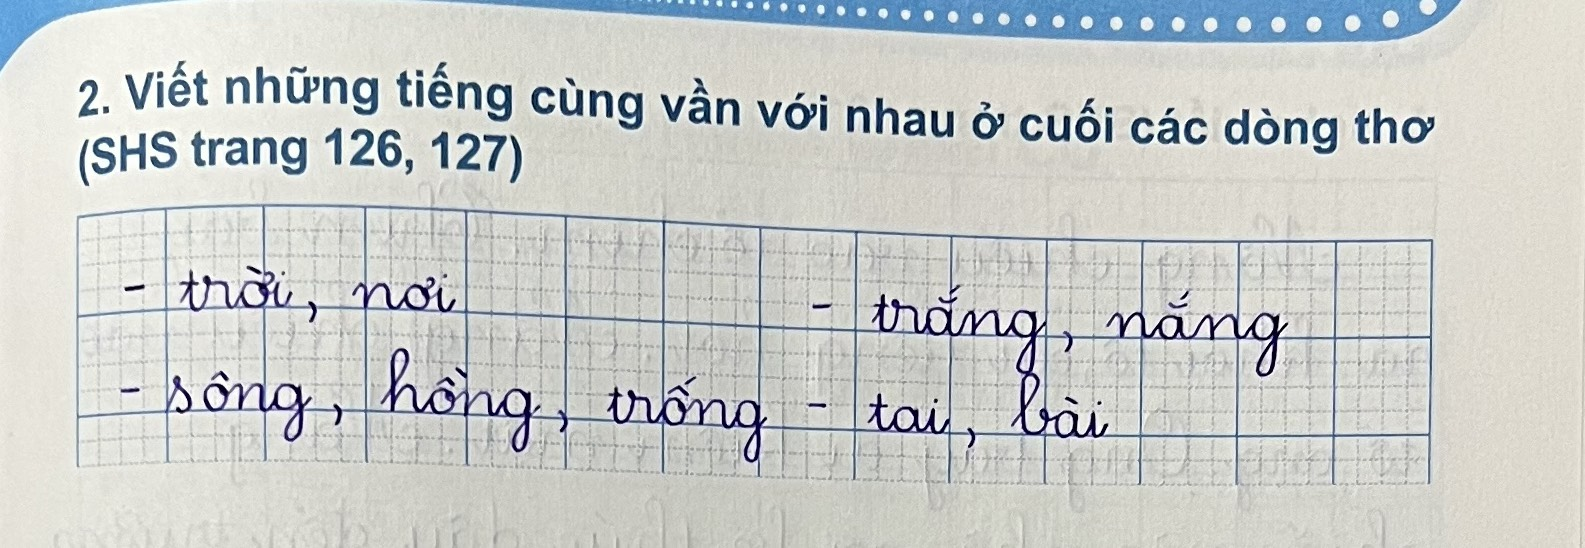 2. Viết những tiếng cùng vần với nhau ở cuối các dòng thơ
(SHS trang 126, 127)
- trời, nơi - trắng, nắng
- sông, hồng, trống - tai, bài